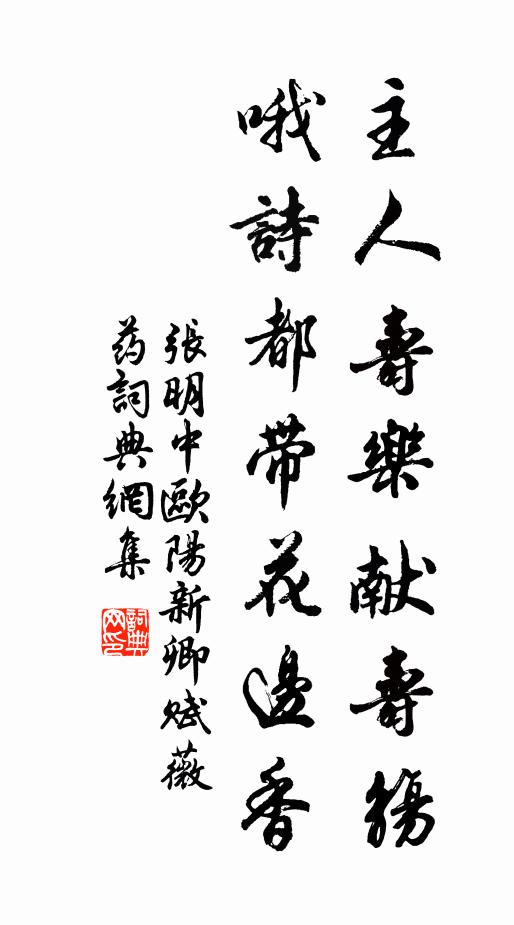 主人壽樂献壽觴
哦詩都帶花邊香
張明中歐陽新卿賦薇
药詞典網集
詞典